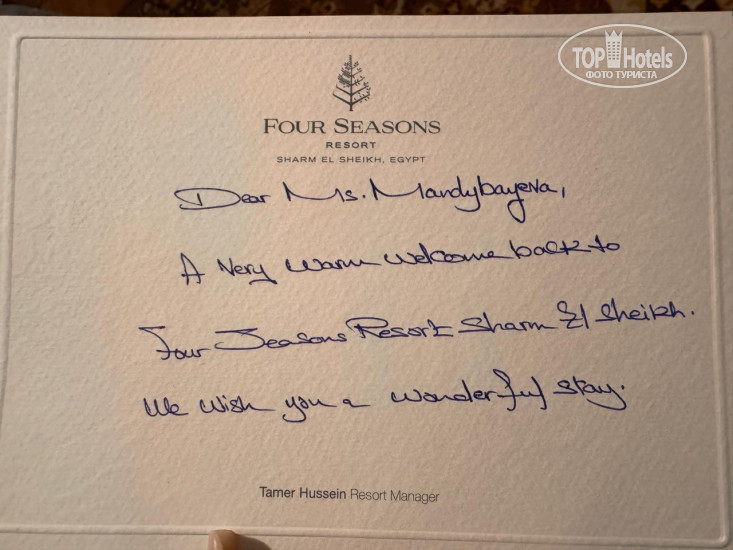 TOP Hotels
ФОТО ТУРИСТА
FOUR SEASONS
RESORT
SHARM EL SHEIKH, EGYPT
Dear Ms. Mandybayeva,
A Very warm welcome back to
Four Seasons Resort Sharm El Sheikh.
We wish you a wonderful stay.
Tamer Hussein Resort Manager